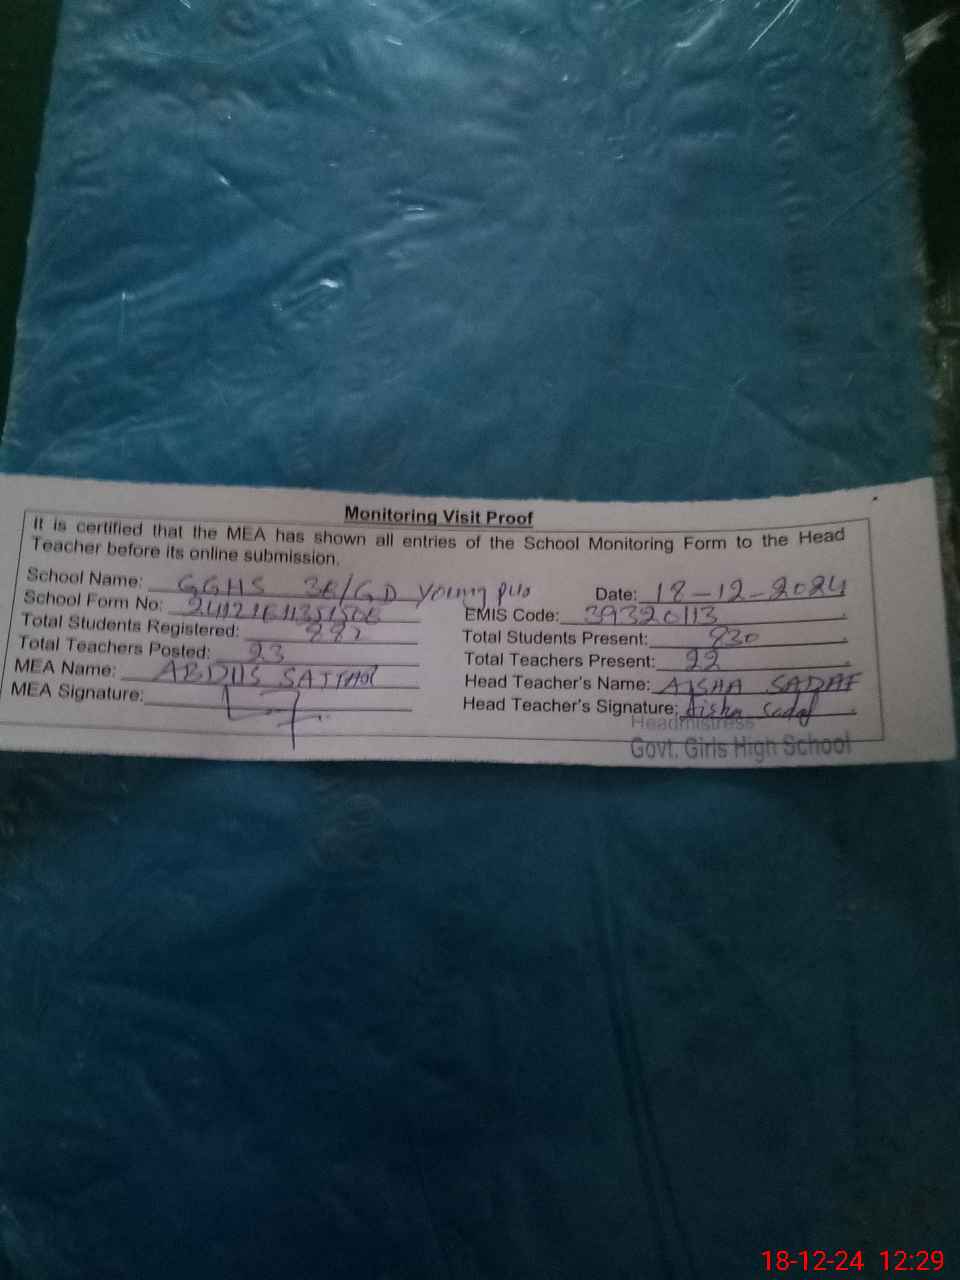 Monitoring Visit Proof
It is certified that the MEA has shown all entries of the School Monitoring Form to the Head
Teacher before its online submission.
School Name: GGHS /GD young pus Date: 18-12-2024
School Form No: EMIS Code: 39320113
Total Students Registered: 887 Total Students Present: 830
Total Teachers Posted: 23 Total Teachers Present: 22
MEA Name: ABDUS SATTAR Head Teacher's Name: AISHA SADAF
MEA Signature: Head Teacher's Signature: Aisha Sadaf
Headmistress
Govt. Girls High School
18-12-24 12:29